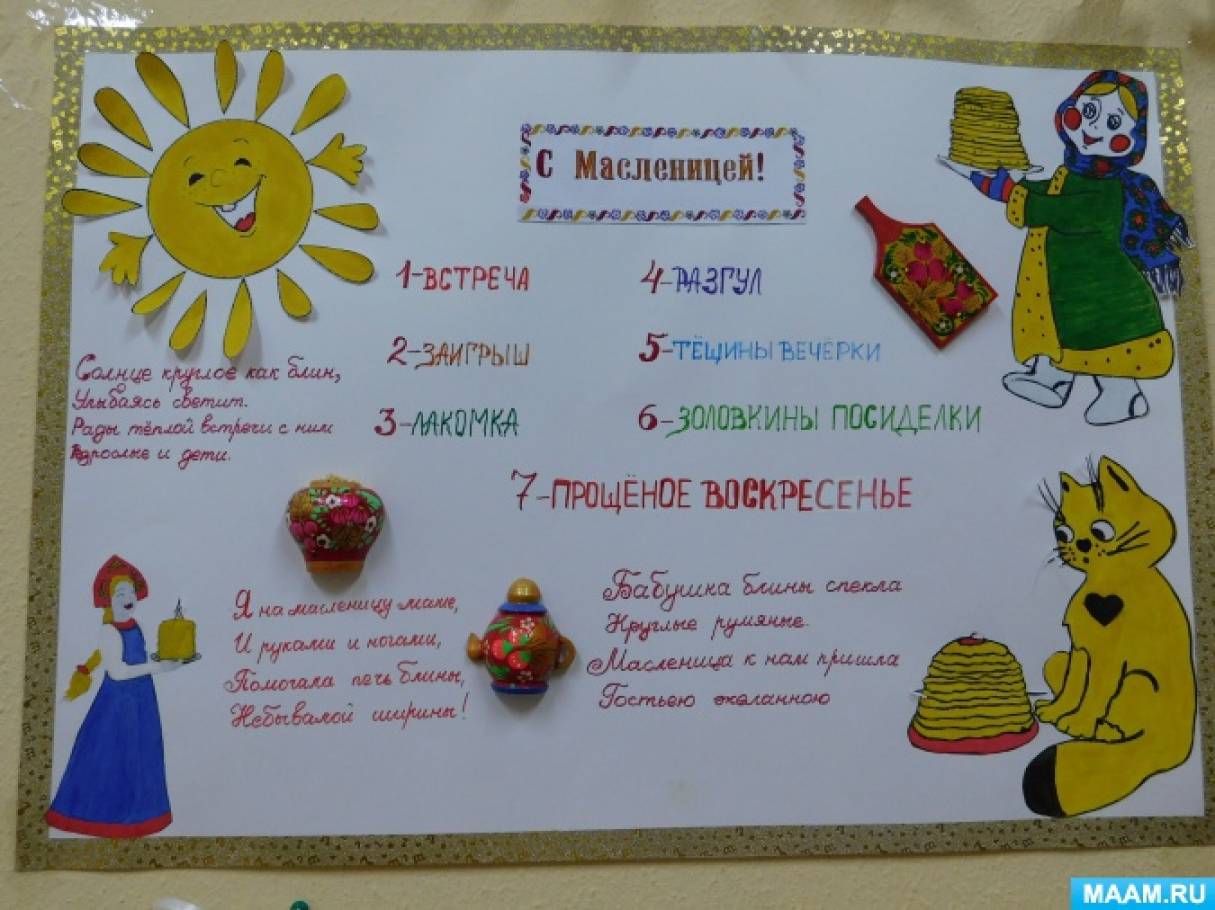 С Масленицей!
1-ВСТРЕЧА
2-ЗАИГРЫШ
3-ЛАКОМКА
4-РАЗГУЛ
5-ТЁЩИНЫ ВЕЧЁРКИ
6-ЗОЛОВКИНЫ ПОСИДЕЛКИ
7-ПРОЩЁНОЕ ВОСКРЕСЕНЬЕ
Солнце круглое как блин,
Улыбаясь светит.
Рады тёплой встречи с ним
Взрослые и дети.
Я на масленицу маме,
И руками и ногами,
Помогала печь блины,
Небывалой ширины!
Бабушка блины спекла
Круглые румяные.
Масленица к нам пришла
Гостьею желанною
MAAM.RU